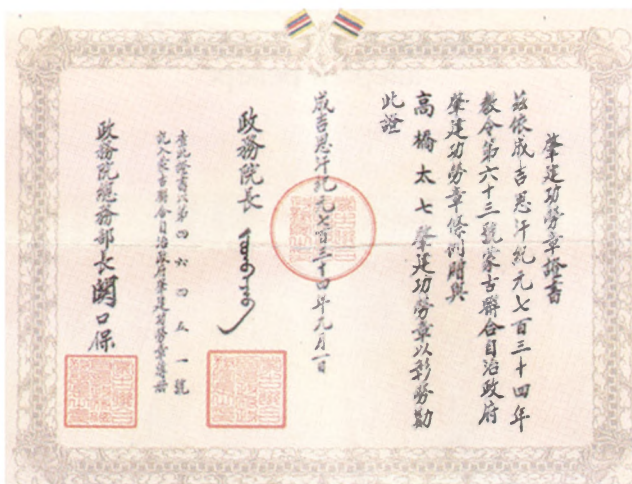 肇建功勞章證書
茲依成吉思汗紀元七百三十四年
教令第六十三號蒙古聯合自治政府
肇建功勞章條例附與
高橋太七肇建功勞章以彰勞勩
此證
成吉思汗紀元七百三十四年九月一日
政務院長
查此證書以第四六四五一號
記入蒙古聯合自治政府肇建功勞章簿冊
政務院總務部長關口保